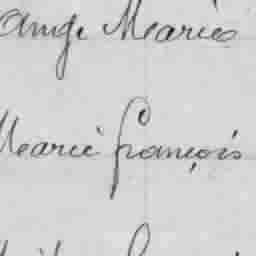 Ange Marie
Marie françois